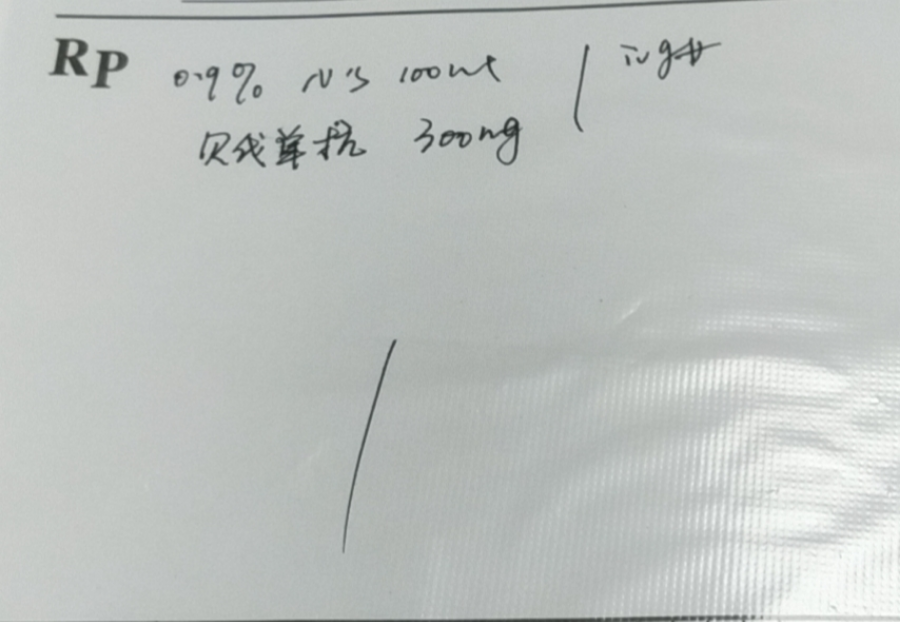 RP
0.9% NS 100ml / ivgtt
贝伐单抗 300mg